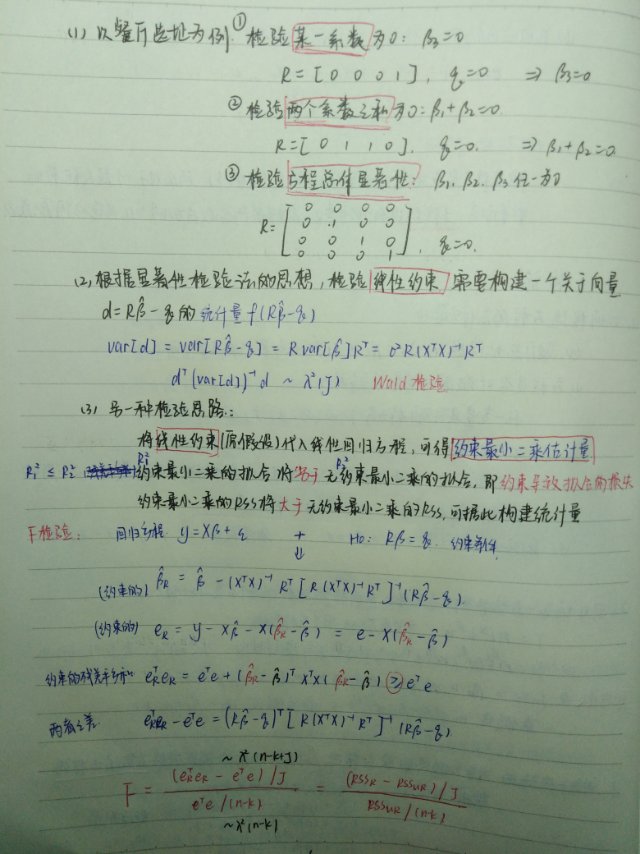 (1) 以餐厅选址为例 ① 检验某一系数为0: β₃=0
R = [0 0 0 1], q=0 ⇒ β₃=0
② 检验两个系数之和为0: β₁+β₂=0
R=[0 1 1 0], q=0. ⇒ β₁+β₂=0
③ 检验方程总体显著性: β₁, β₂, β₃ 任一为0
R = [0 0 0 0
0 1 0 0
0 0 1 0
0 0 0 1], q=0.
(2) 根据显著性检验法的思想, 检验线性约束 需要构建一个关于向量
d=Rβ̂-q 的统计量 f(Rβ̂-q)
var[d] = var[Rβ̂-q] = R var[β̂]Rᵀ = σ²R(XᵀX)⁻¹Rᵀ
dᵀ(var[d])⁻¹d ~ χ²(J) Wald 检验
(3) 另一种检验思路:
将线性约束(原假设)代入线性回归方程, 可得约束最小二乘估计量
R₁² ≤ R₂² 约束最小二乘的拟合 R₁² 将劣于无约束最小二乘的拟合 R₂², 即约束导致拟合的损失
约束最小二乘的RSS将大于无约束最小二乘的RSS, 可据此构建统计量
F检验: 回归方程 y=Xβ+ε + H₀: Rβ=q 约束条件
⇓
(约束的) β̂_R = β̂ - (XᵀX)⁻¹Rᵀ[R(XᵀX)⁻¹Rᵀ]⁻¹(Rβ̂-q)
(约束的) e_R = y - Xβ̂ - X(β̂_R-β̂) = e-X(β̂_R-β̂)
约束的残差平方和 e_Rᵀe_R = eᵀe + (β̂_R-β̂)ᵀXᵀX(β̂_R-β̂) ≥ eᵀe
两者之差 e_Rᵀe_R - eᵀe = (Rβ̂-q)ᵀ[R(XᵀX)⁻¹Rᵀ]⁻¹(Rβ̂-q)
~χ²(n-k+J)
F = (e_Rᵀe_R - eᵀe)/J / eᵀe/(n-k) = (RSS_R - RSS_UR)/J / RSS_UR/(n-k)
~χ²(n-k)